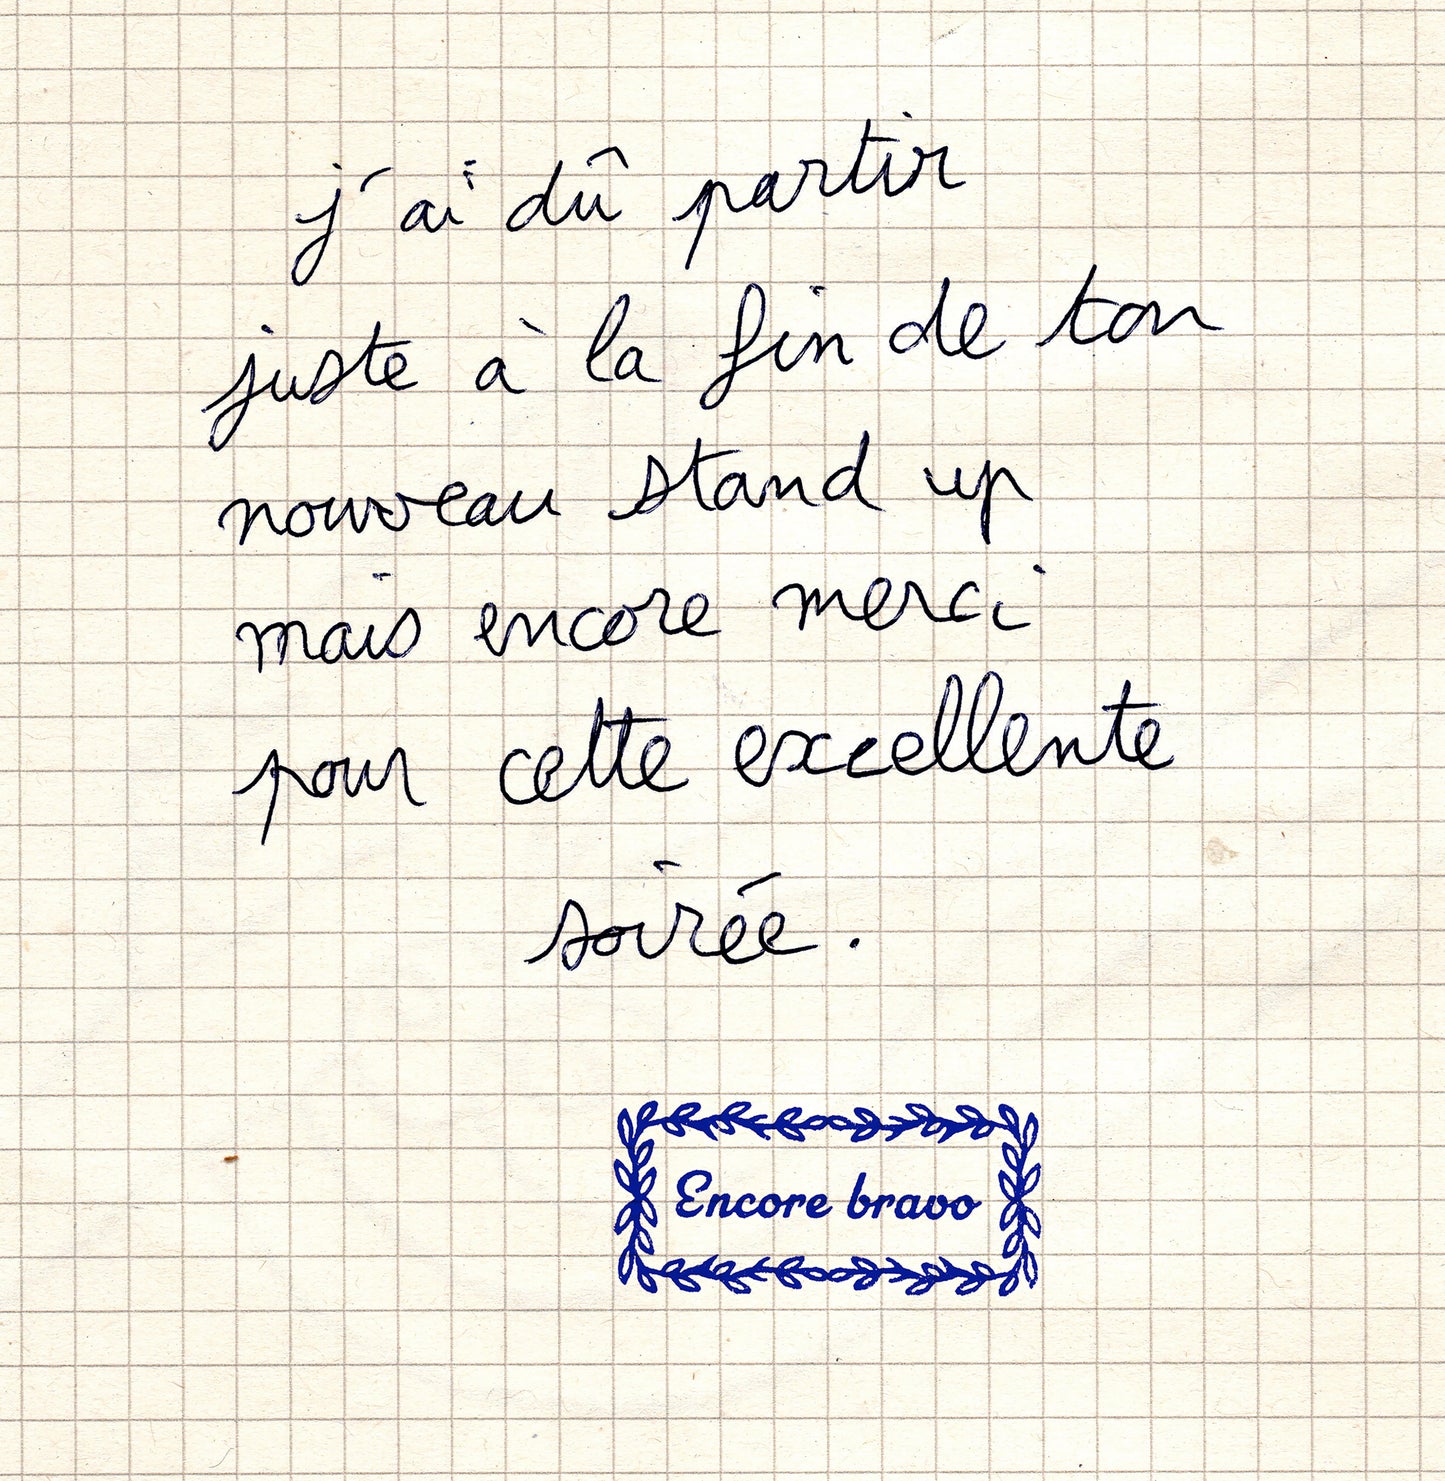 j'ai dû partir
juste à la fin de ton
nouveau stand up
mais encore merci
pour cette excellente
soirée.
Encore bravo